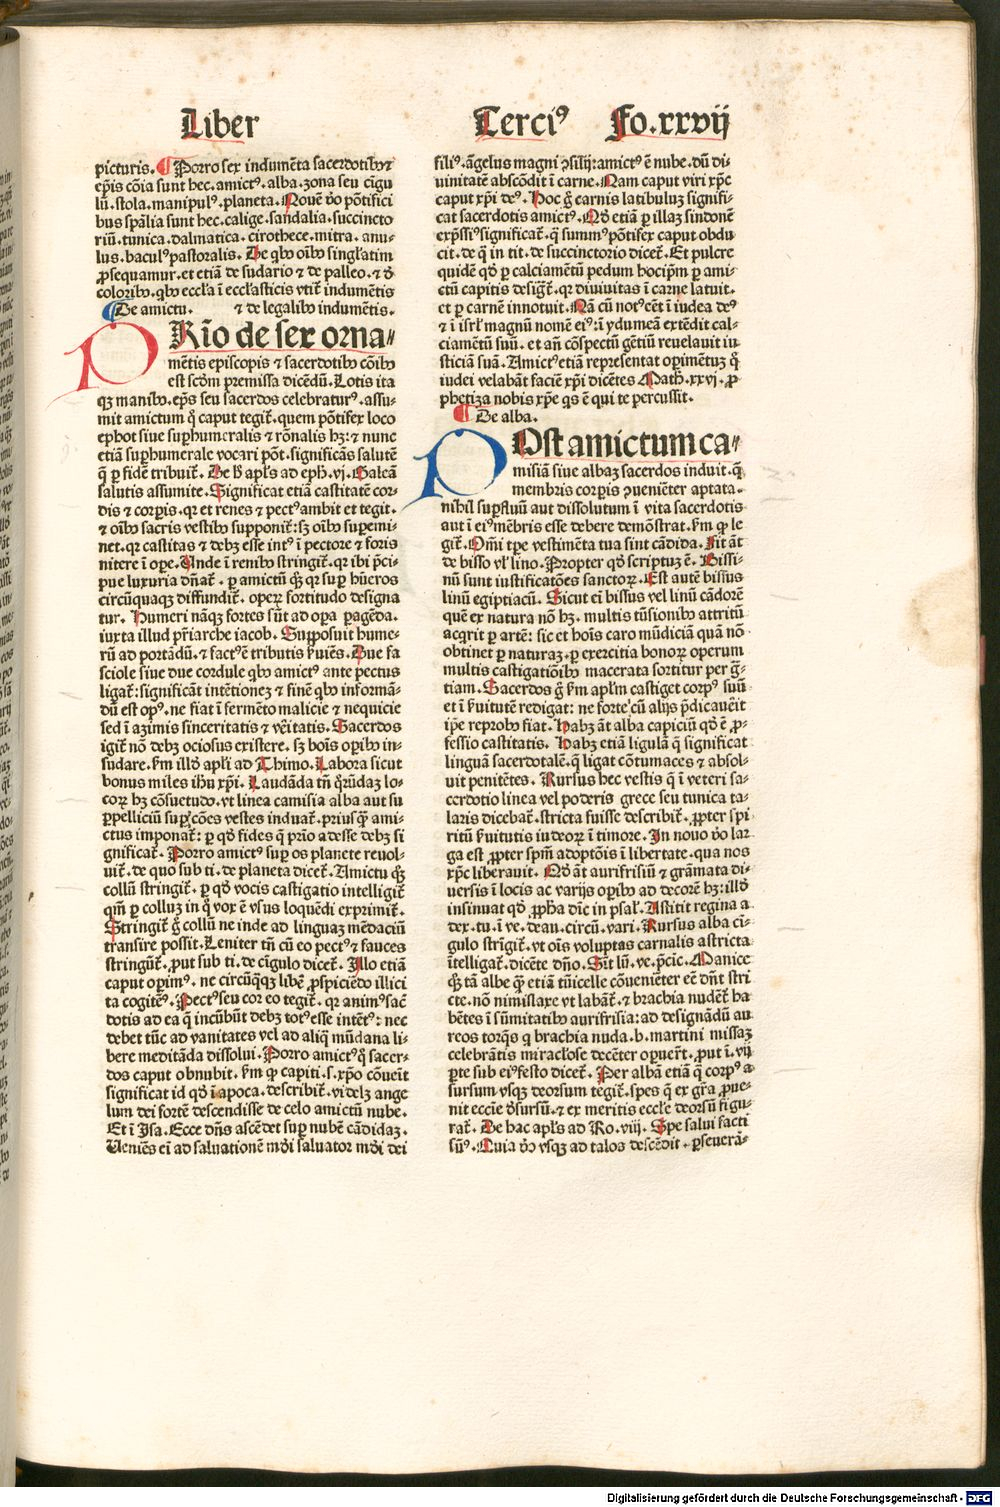 Liber Terciꝰ Fo.xxvij
picturis. Porro sex indumẽta sacerdotibꝰ ⁊
ep̃is cõia sunt hec. amictꝰ. alba. zona seu cigu
lũ. stola. manipulꝰ. planeta. Nouẽ ṽo põtifici
bus sp̃alia sunt hec. calige. sandalia. succincto
riũ. tunica. dalmatica. cirothece. mitra. anu-
lus. baculꝰ pastoralis. De qbꝰ oĩbꝰ singl̃atim
ꝓsequamur. et etiã de sudario ⁊ de palleo. ⁊ d̃
coloribꝰ. qbꝰ eccl̃a ĩ eccl̃asticis vtit̃ indumẽtis
De amictu. ⁊ de legalibꝰ indumẽtis.
PRĩo de sex orna-
mẽtis episcopis ⁊ sacerdotibꝰ cõibꝰ
est scd̃m premissa dicẽdũ. Lotis ita
qꝫ manibꝰ. ep̃s seu sacerdos celebraturꝰ. assu-
mit amictum q̃ caput tegit̃. quem põtifex loco
ephot siue suꝑhumeralis ⁊ rõnalis hꝫ: ⁊ nunc
etiã suphumerale vocari põt. significãs salutẽ
q̃ ꝑ fidẽ tribuit̃. De h̃ apl̃s ad eph. vj. Galeã
salutis assumite. Significat etiã castitatẽ cor-
dis ⁊ corꝑis. qr et renes ⁊ pectꝰ ambit et tegit.
⁊ oĩbꝰ sacris vestibꝰ supponit̃: sꝫ oĩbꝰ suꝑemi-
net. qr castitas ⁊ debꝫ esse intꝰ ĩ pectore ⁊ foris
nitere ĩ oꝑe. Unde ĩ renibꝰ stringit̃. qr ibi p̃ci-
pue luxuria dñat̃. ꝑ amictũ qꝫ qr suꝑ hũeros
circũquaqꝫ diffundit̃. operꝫ fortitudo designa
tur. Humeri nãqꝫ fortes sũt ad oꝑa ꝑagẽda.
iuxta illud pr̃iarche iacob. Supposuit hume-
rũ ad portãdũ. ⁊ factꝰ ẽ tributis ẽuiẽs. Due fa
sciole siue due cordule qbꝰ amictꝰ ante pectus
ligat̃: significãt intẽtioneꝫ ⁊ finẽ qbꝰ informã-
dũ est opꝰ. ne fiat ĩ fermẽto malicie ⁊ nequicie
sed ĩ azimis sinceritatis ⁊ ṽitatis. Sacerdos
igit̃ nõ debꝫ ociosus existere. sꝫ bois oꝑibꝰ in-
sudare. ẽm illd̃ apl̃i ad Thimo. Labora sicut
bonus miles ih̃u xp̃i. Laudãda tñ q̃rũdaꝫ lo-
corꝫ hꝫ cõsuetudo. vt linea camisia alba aut su
ꝑpelliciũ suꝑ cões vestes induat̃. priusq̃ ami-
ctus imponat̃: ꝑ qd̃ fides q̃ prĩo adesse debꝫ si
gnificat̃. Porro amictꝰ suꝑ os planete reuol-
uit̃. de quo sub ti. de planeta dicet̃. Amictu qꝫ
collũ stringit̃. ꝑ qd̃ vocis castigatio intelligit̃
qm̃ ꝑ colluꝫ in q̃ vox ẽ vsus loquẽdi exprimit̃.
Stringit̃ g̃ collũ ne inde ad linguaꝫ mẽdaciũ
transire possit. Leniter tñ cũ eo pectꝰ ⁊ fauces
stringũt̃. ꝓut sub ti. de cĩgulo dicet̃. Illo etiã
caput oꝑimꝰ. ne circũq̃qꝫ libẽ ꝓspiciẽdo illici
ta cogitẽꝰ. Pectꝰ seu cor eo tegit̃. qr animꝰ sac̃
dotis ad ea q̃ incũbũt debꝫ totꝰ esse intẽtꝰ: nec
debet tũc ad vanitates vel ad aliq̃ mũdana li-
bere meditãda dissolui. Porro amictꝰ q̃ sacer-
dos caput obnubit. ẽm q̃ capiti. s. xp̃o cõueĩt
significat id qd̃ ĩ apoca. describit̃. videlꝫ ange
lum dei fortẽ descendisse de celo amictũ nube.
Et ĩ Isa. Ecce dñs ascẽdet suꝑ nubẽ cãdidaꝫ.
Ueniẽs eĩ ad saluationẽ mũdi saluator mũdi dei
filiꝰ. ãgelus magni ꝯsilij: amictꝰ ẽ nube. dũ di-
uinitatẽ abscõdit ĩ carne. Nam caput viri xp̃c
caput xp̃i deꝰ. Hoc g̃ carnis latibuluꝫ signifi-
cat sacerdotis amictꝰ. Qd̃ etiã ꝑ illaꝫ sindonẽ
exp̃ssiꝰ significat̃. q̃ summꝰ põtifex caput obdu
cit. de q̃ in tit. de succinctorio dicet̃. Et pulcre
quidẽ qd̃ ꝑ calciamẽtũ pedum hocip̃m ꝑ ami-
ctũ capitis desig̃t̃. qr diuiuitas ĩ carne latuit.
et ꝑ carnẽ innotuit. Nã cũ notꝰ cẽt ĩ iudea deꝰ
⁊ ĩ isrl̃ magnũ nomẽ eiꝰ: ĩ ydumeã extẽdit cal-
ciamẽtũ suũ. et añ cõspectũ gẽtiũ reuelauit iu
sticiã suã. Amictꝰ etiã representat oꝑimẽtuꝫ q̃
iudei velabãt faciẽ xp̃i dicẽtes Math. xxvj. ꝓ
phetiza nobis xp̃e qs ẽ qui te percussit.
De alba.
POst amictum ca-
misiã siue albaꝫ sacerdos induit. q̃
membris corꝑis ꝯueniẽter aptata.
nihil suꝑfluũ aut dissolutum ĩ vita sacerdotis
aut ĩ eiꝰ mẽbris esse debere demõstrat. ẽm q̃ le
git̃. Om̃i tꝑe vestimẽta tua sint cãdida. Fit ãt
de bisso vl̃ lino. Propter qd̃ scriptuꝫ ẽ. Bissi-
nũ sunt iustificatões sanctorꝫ. Est autẽ bissus
linũ egiptiacũ. Sicut eĩ bissus vel linũ cãdorẽ
quẽ ex natura nõ hꝫ. multis tũsionibꝰ attritũ
acqrit ꝑ artẽ: sic et hois caro mũdiciã quã nõ
obtinet ꝑ naturaꝫ. ꝑ exercitia bonorꝫ operum
multis castigatiõibꝰ macerata sortitur per g̃-
tiam. Sacerdos g̃ ẽm apl̃m castiget corpꝰ suũ
et ĩ ẽuitutẽ redigat: ne forte cũ alijs p̃dicauẽit
ip̃e reprobꝰ fiat. Habꝫ ãt alba capiciũ qd̃ ẽ ꝓ-
fessio castitatis. Habꝫ etiã ligulã q̃ significat
linguã sacerdotalẽ. q̃ ligat cõtumaces ⁊ absol-
uit penitẽtes. Rursus hec vestis q̃ ĩ veteri sa-
cerdotio linea vel poderis grece seu tunica ta-
laris dicebat̃. stricta fuisse describit̃. ꝓpter spi
ritũ ẽuitutis iudeorꝫ ĩ timore. In nouo ṽo lar
ga est ꝓpter sp̃m adoptõis ĩ libertate. qua nos
xp̃c liberauit. Qd̃ ãt aurifrisiũ ⁊ grãmata di-
uersis ĩ locis ac varijs oꝑibꝰ ad decorẽ hꝫ: illd̃
insinuat qd̃ ꝓph̃a dĩc in psal̃. Astitit regina a
dex. tu. ĩ ve. deau. circũ. vari. Rursus alba cĩ-
gulo strĩgit̃. vt oĩs voluptas carnalis astricta
ĩtelligat̃. dicẽte dño. Sĩt lũ. ve. p̃cic. Manice
qꝫ tã albe q̃ etiã tũicelle cõueniẽter eẽ dñt stri
cte. nõ nimis laxe vt labãt̃. ⁊ brachia nudẽt̃ ha
bẽtes ĩ sũmitatibꝰ aurifrisia: ad designãdũ au
reos torq̃s q brachia nuda. b. martini missaꝫ
celebrãtis miracl̃ose decẽter oꝑuer̃t. ꝓut ĩ. vij
ꝑte sub eiꝰ festo dicet̃. Per albã etiã q̃ corpꝰ a
sursum vsqꝫ deorsum tegit̃. spes q̃ ex gr̃a ꝓue-
nit eccl̃ie d̃sursũ. ⁊ ex meritis eccl̃e deorsũ figu-
rat̃. De hac apl̃s ad Ro. viij. Spe salui facti
sũꝰ. Quia ṽo vsqꝫ ad talos descẽdit. ꝑseuerã-
Digitalisierung gefördert durch die Deutsche Forschungsgemeinschaft - DFG